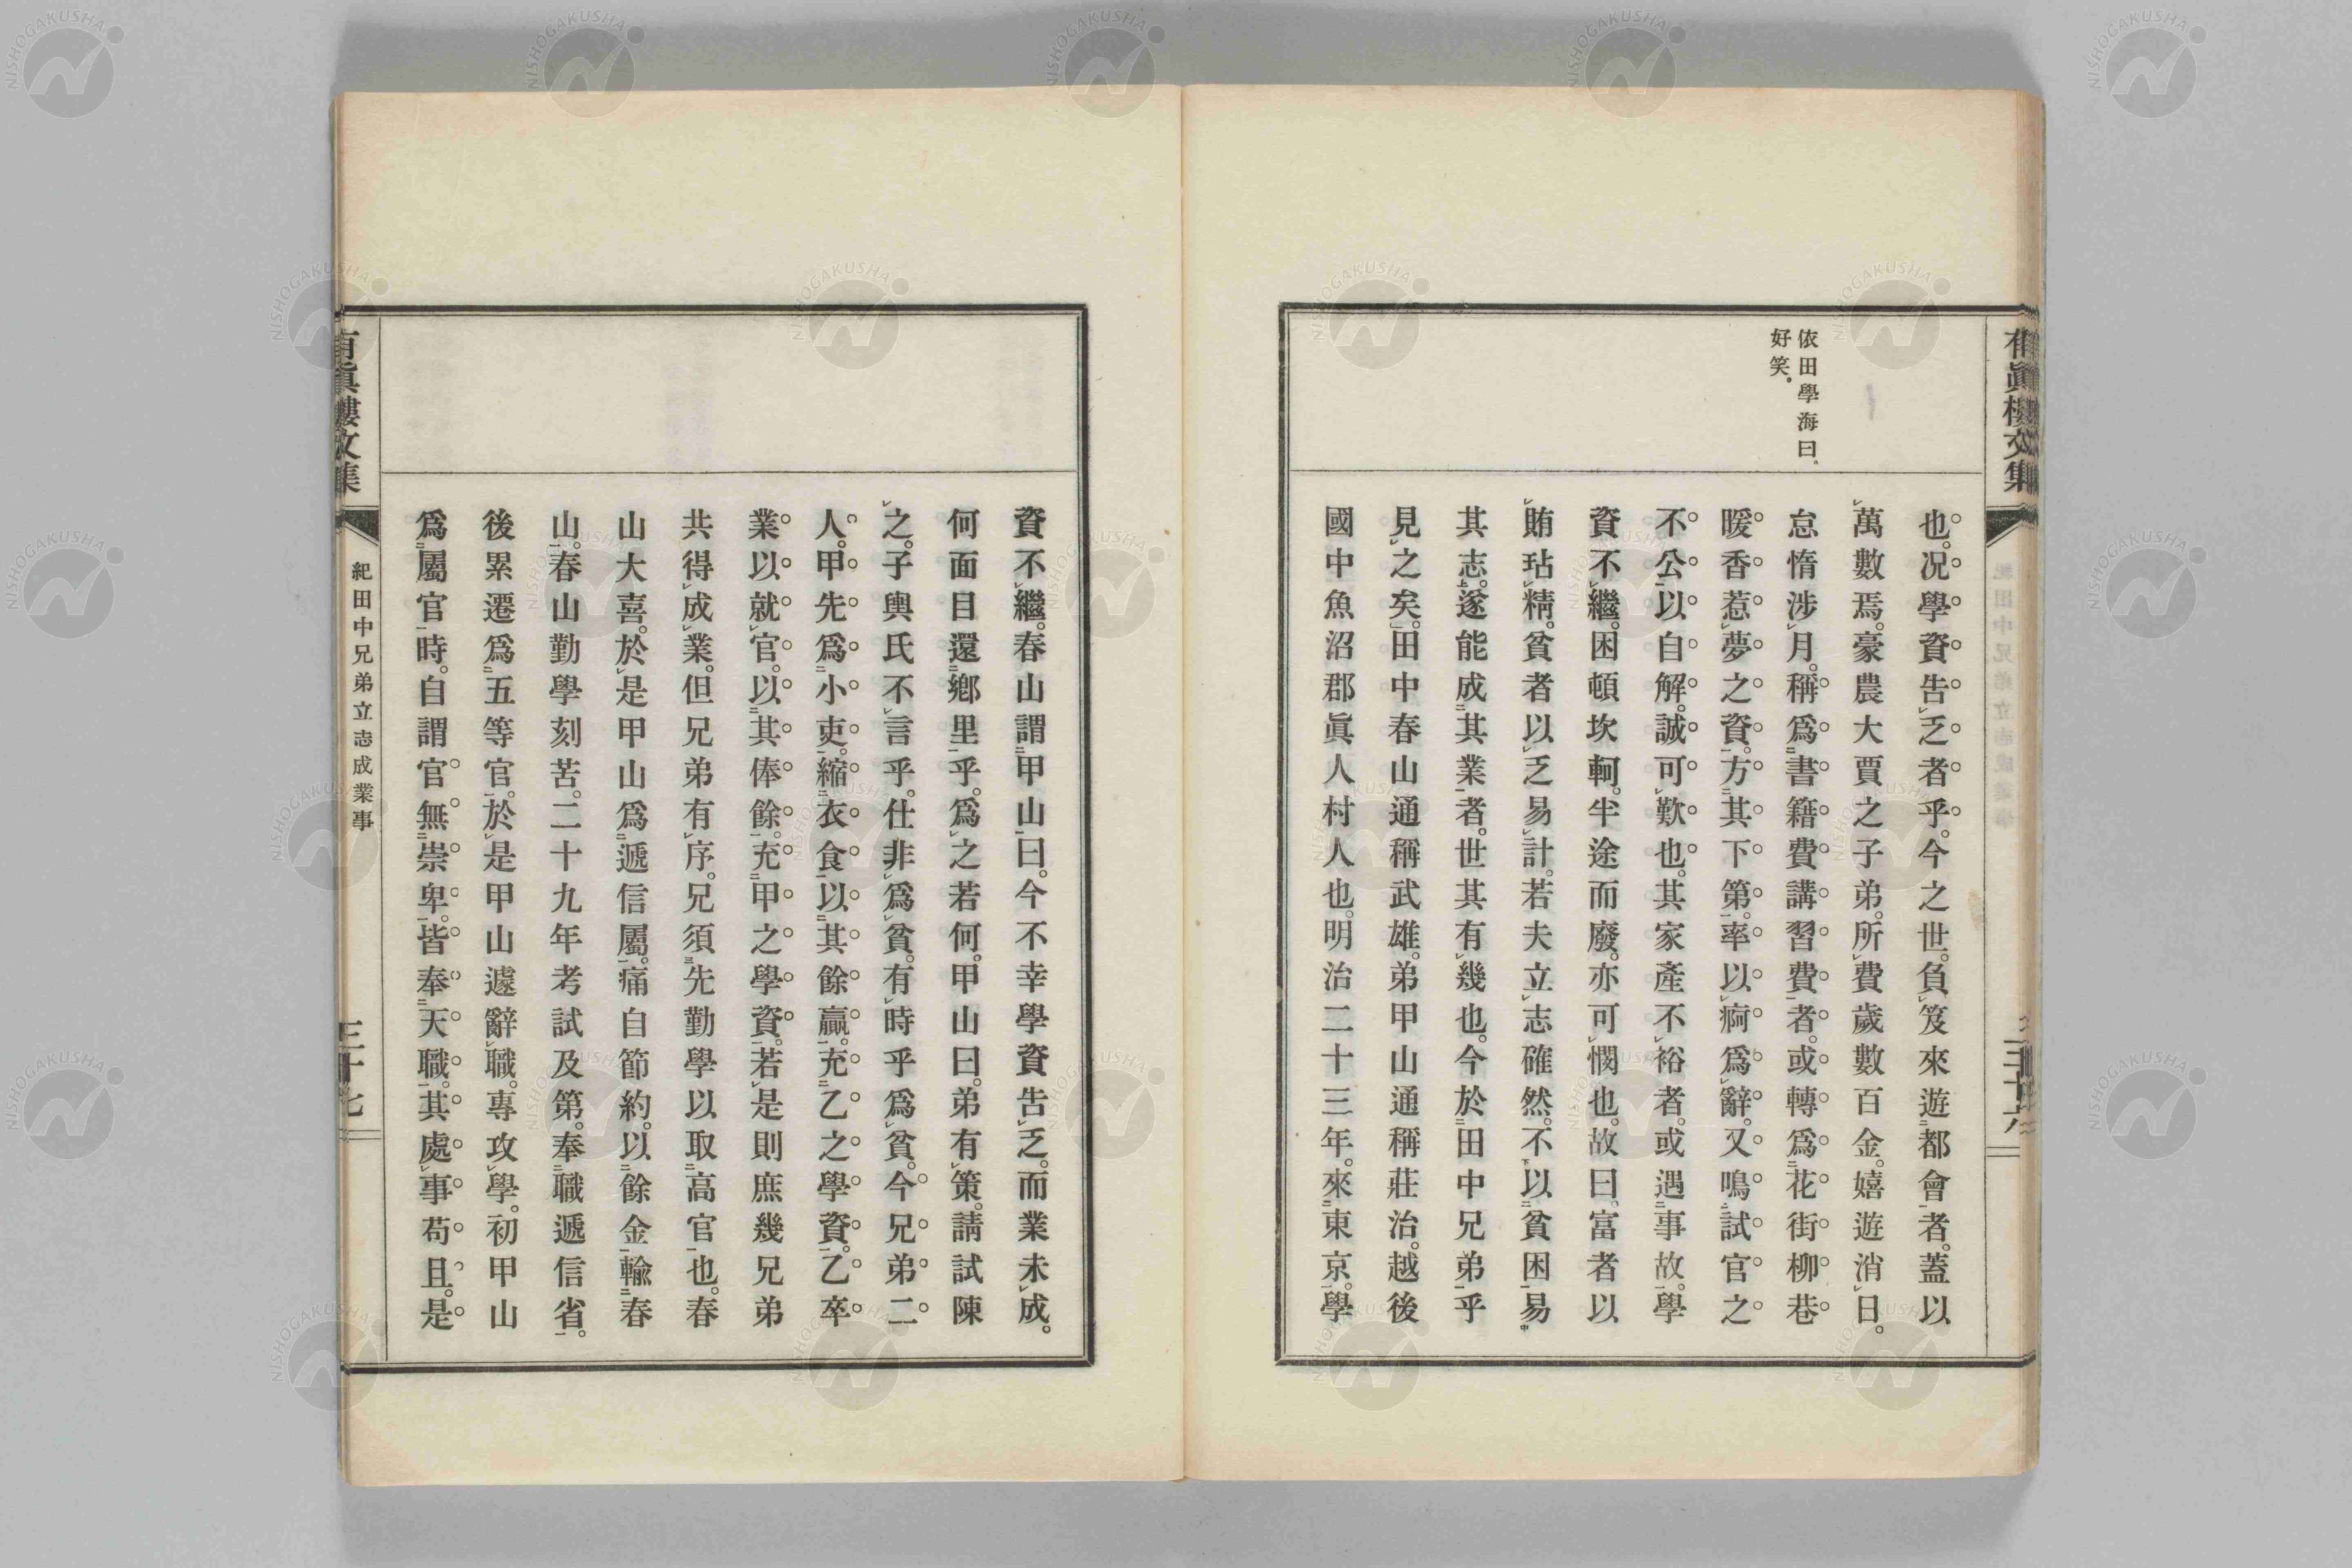 有眞樓文集
三十六
依田學海曰。
好笑。
也。況學資告乏者乎。今之世。負笈來遊都會者。蓋以
萬數焉。豪農大賈之子弟。所費歲數百金。嬉遊消日。
怠惰涉月。稱爲書籍費講習費者。或轉爲花街柳巷
暖香惹夢之資。方其下第。率以痾爲辭。又鳴試官之
不公以自解。誠可歎也。其家產不裕者。或遇事故。學
資不繼。困頓坎軻。半途而廢。亦可憫也。故曰。富者以
賄玷精。貧者以乏易計。若夫立志確然。不以貧困易
其志。遂能成其業者。世其有幾也。今於田中兄弟乎
見之矣。田中春山通稱武雄。弟甲山通稱莊治。越後
國中魚沼郡眞人村人也。明治二十三年。來東京。學
資不繼。春山謂甲山曰。今不幸學資告乏。而業未成。
何面目還鄉里乎。爲之若何。甲山曰。弟有策。請試陳
之。子輿氏不言乎。仕非爲貧。有時乎爲貧。今兄弟二
人。甲先爲小吏。縮衣食以其餘贏。充乙之學資。乙卒
業以就官。以其俸餘。充甲之學資。若是則庶幾兄弟
共得成業。但兄弟有序。兄須先勤學以取高官也。春
山大喜。於是甲山爲遞信屬。痛自節約。以餘金輸春
山。春山勤學刻苦。二十九年考試及第。奉職遞信省。
後累遷爲五等官。於是甲山遽辭職。專攻學。初甲山
爲屬官時。自謂官無崇卑。皆奉天職。其處事苟且。是
紀田中兄弟立志成業事
有眞樓文集
三十七